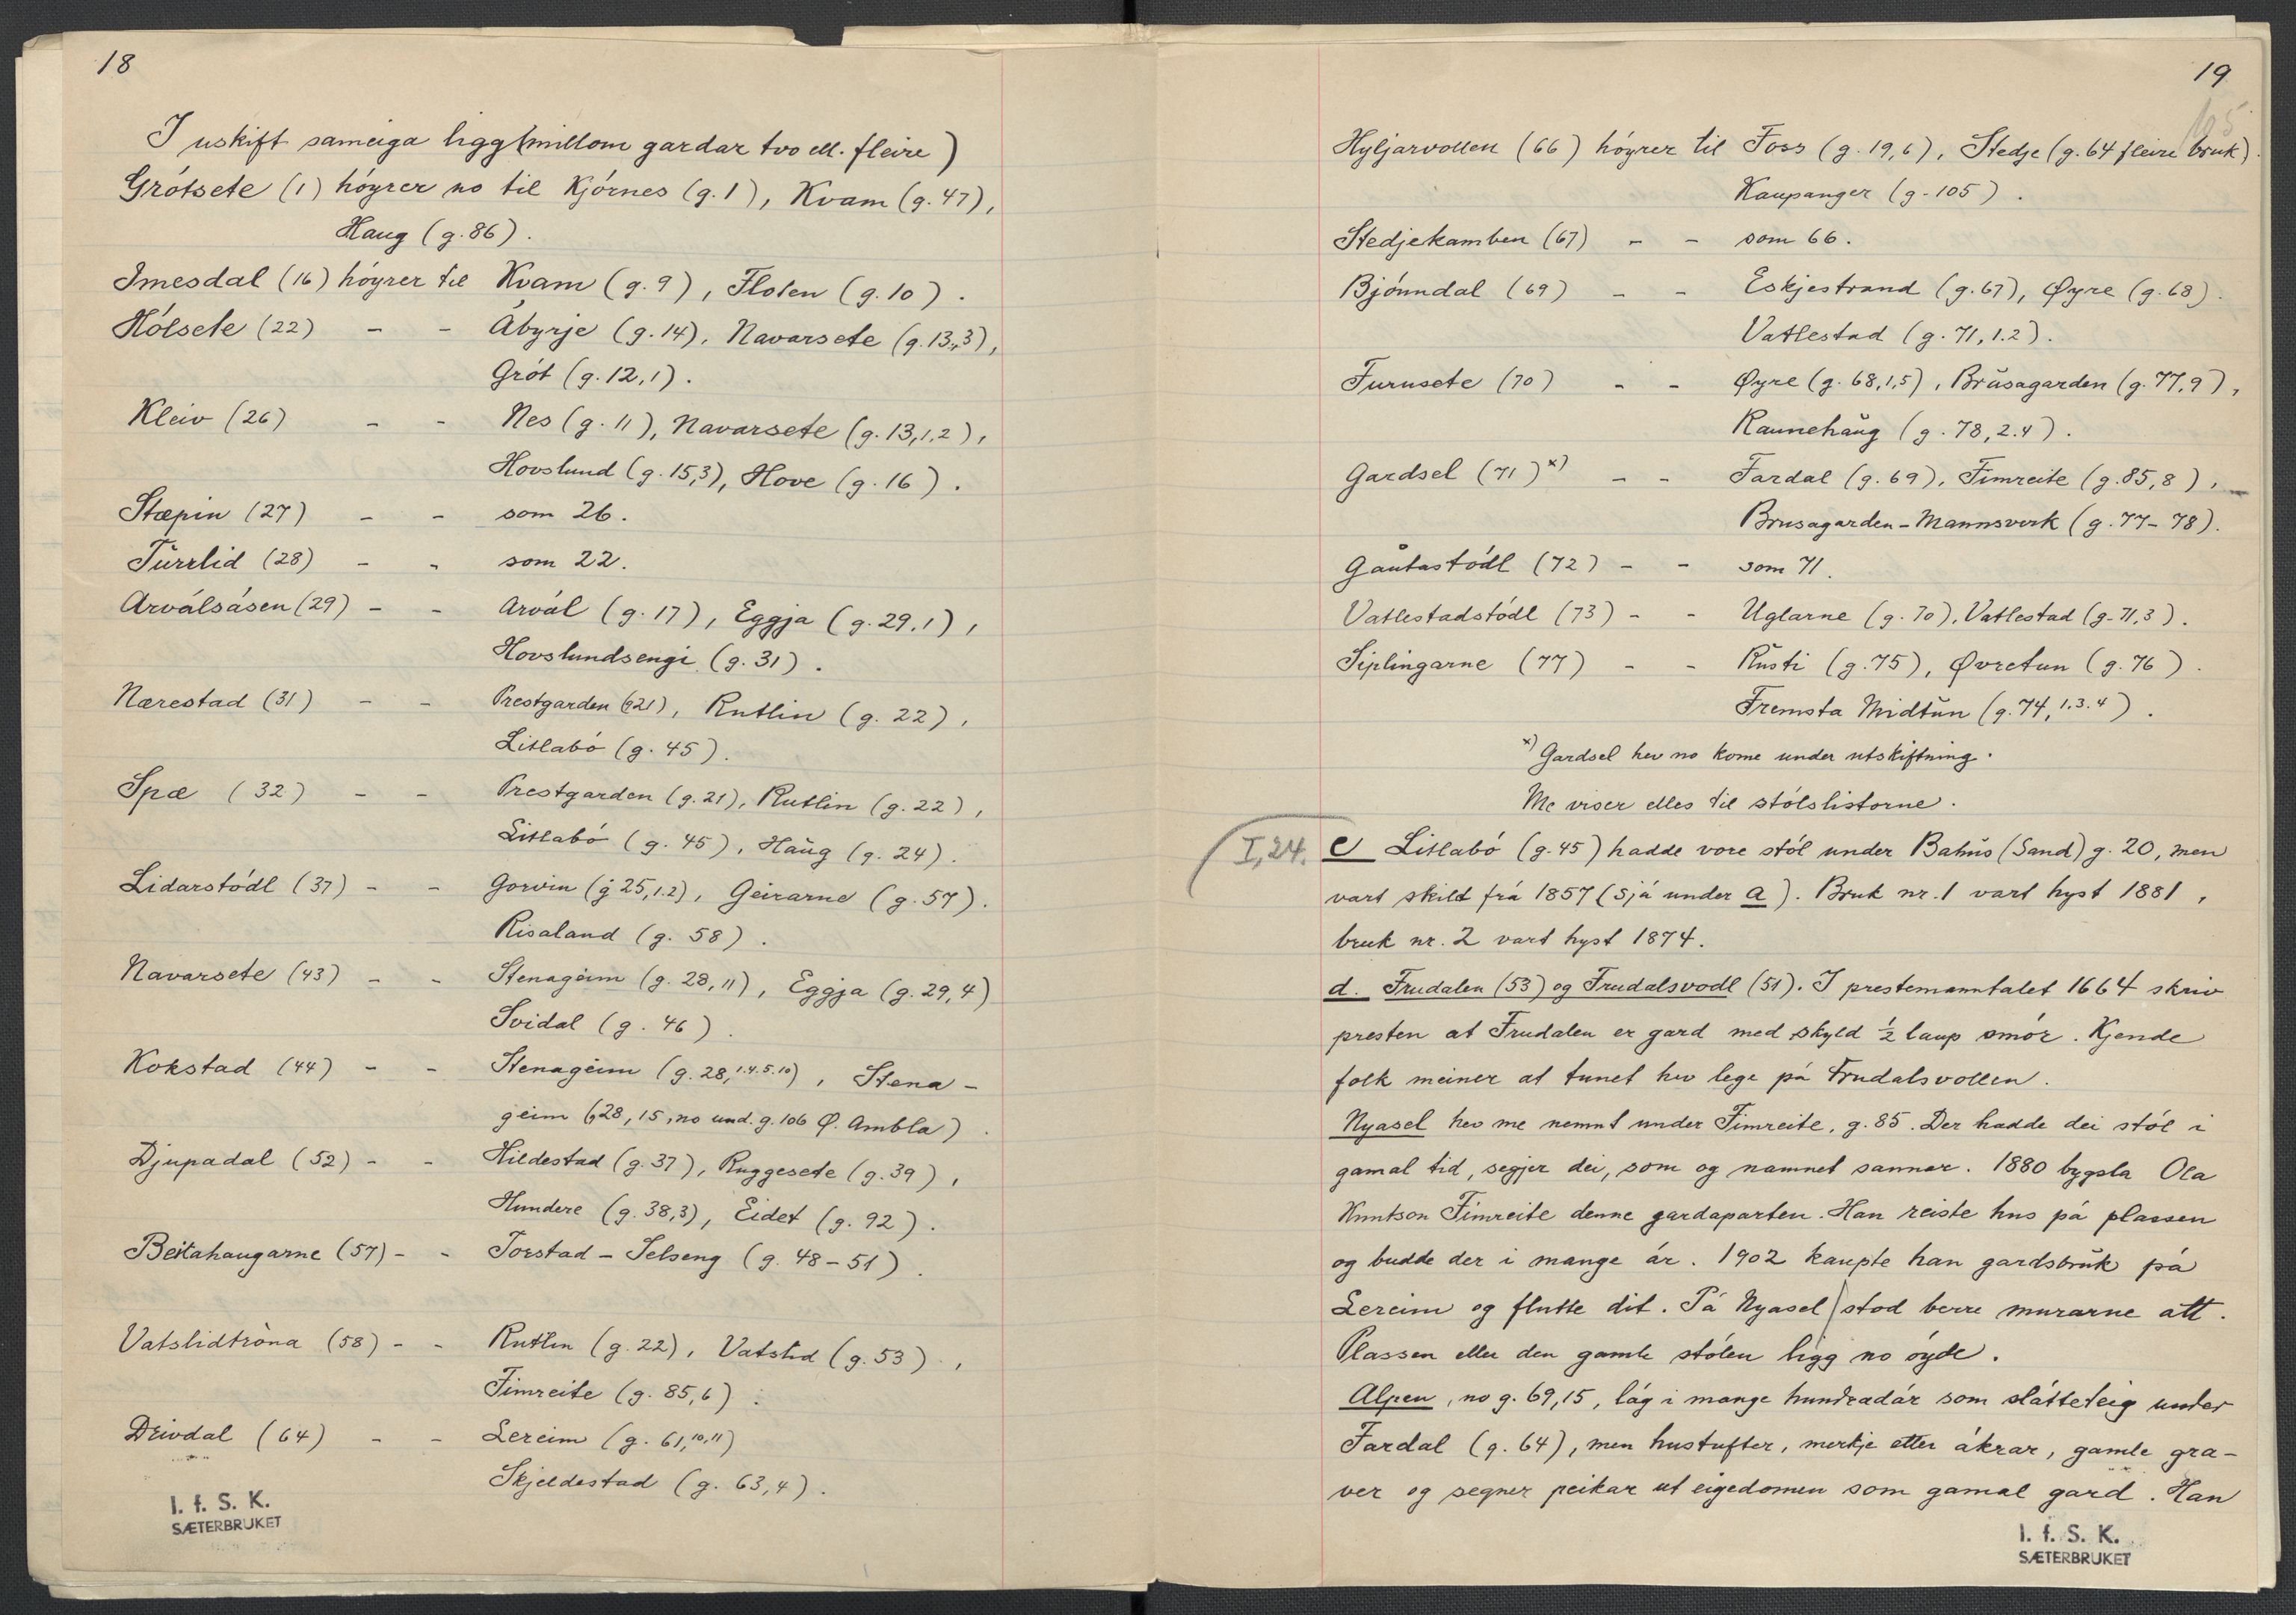 18
I uskift sameiga ligg (millom gardar tvo ell. fleire)
Grótsete (1) höyrer no til Kjórnes (g. 1), Kvam (g. 47),
Haug (g. 86).
Imesdal (16) höyrer til Kvam (g. 9), Floten (g. 10).
Hólsete (22) - - Åbyrje (g. 14), Navarsete (g. 13,3),
Grót (g. 12,1).
Kleiv (26) - - Nes (g. 11), Navarsete (g. 13,1,2),
Hovslund (g. 15,3), Hove (g. 16).
Stæpin (27) - - som 26.
Tŭrrlid (28) - - som 22.
Arválsásen (29) - - Arvál (g. 17), Eggja (g. 29,1),
Hovslundsengi (g. 31).
Nærestad (31) - - Prestgarden (g21), Rutlin (g. 22),
Litlabó (g. 45).
Spæ (32) - - Prestgarden (g. 21), Rutlin (g. 22),
Litlabó (g. 45), Haŭg (g. 24).
Lidarstódl (37) - - Gorvin (g 25,1.2), Geirarne (g. 57).
Risaland (g. 58).
Navarsete (43) - - Stenageim (g. 28,11), Eggja (g. 29,4)
Svidal (g. 46).
Kokstad (44) - - Stenageim (g. 28,1.4.5.10), Stena-
geim (g28,15, no und. g. 106 Ø. Ambla).
Djupadal (52) - - Hildestad (g. 37), Ruggesete (g. 39),
Hundere (g. 38,3), Eidet (g. 92).
Beitahaugarne (57) - - Torstad - Selseng (g. 48-51).
Vatslidtróna (58) - - Rutlin (g. 22), Vatslid (g. 53),
Fimreite (g. 85,6).
Drivdal (64) - - Lereim (g. 61,10,11)
Skjeldestad (g. 63,4).
I. f. S. K.
SÆTERBRUKET
19
Hyljarvollen (66) höyrer til Foss (g. 19,6), Stedje (g. 64 fleire brŭk).
Kaupanger (g. 105).
Stedjekamben (67) - - som 66.
Bjónndal (69) - - Eskjestrand (g. 67), Øyre (g. 68).
Vatlestad (g. 71,1.2).
Furusete (70) - - Øyre (g. 68,1,5), Brŭsagarden (g. 77,9),
Raunehaŭg (g. 78,2.4).
Gardsel (71) x) - - Fardal (g. 69), Fimreite (g. 85,8),
Brusagarden - Mannsverk (g. 77-78).
Gaŭtastódl (72) - - som 71.
Vatlestadstódl (73) - - Uglarne (g. 70), Vatlestad (g. 71,3).
Siplingarne (77) - - Rŭsti (g. 75), Øvretun (g. 76).
Fremsta Midtŭn (g. 74,1.3.4).
x) Gardsel hev no kome under utskiftning.
Me viser elles til stólslistorne.
I,24. c Litlabó (g. 45) hadde vore stól under Bahŭs (Sand) g. 20, men
vart skild frå 1857 (sjå under a). Bruk nr. 1 vart hyst 1881,
bruk nr. 2 vart hyst 1874.
d. Frudalen (53) og Frudalsvodl (51). I prestemanntalet 1664 skriv
presten at Frudalen er gard med skyld ½ laup smór. Kjende
folk meiner at tunet hev lege på Frudalsvollen.
Nyasel hev me nemnt under Fimreite, g. 85. Der hadde dei stól i
gamal tid, segjer dei, som og namnet sannar. 1880 bygsla Ola
Knutson Fimreite denne gardaparten. Han reiste hus på plassen
og budde der i mange år. 1902 kaupte han gardsbrŭk på
Lereim og flutte dit. På Nyasel stod berre murarne att.
Plassen eller den gamle stólen ligg no óyde.
Alpen, no g. 69,15, låg i mange hundradår som slåtteteig under
Fardal (g. 64), men hustufter, merkje etter åkrar, gamle gra-
ver og segner peikar ut eigedomen som gamal gard. Han
I. f. S. K.
SÆTERBRUKET